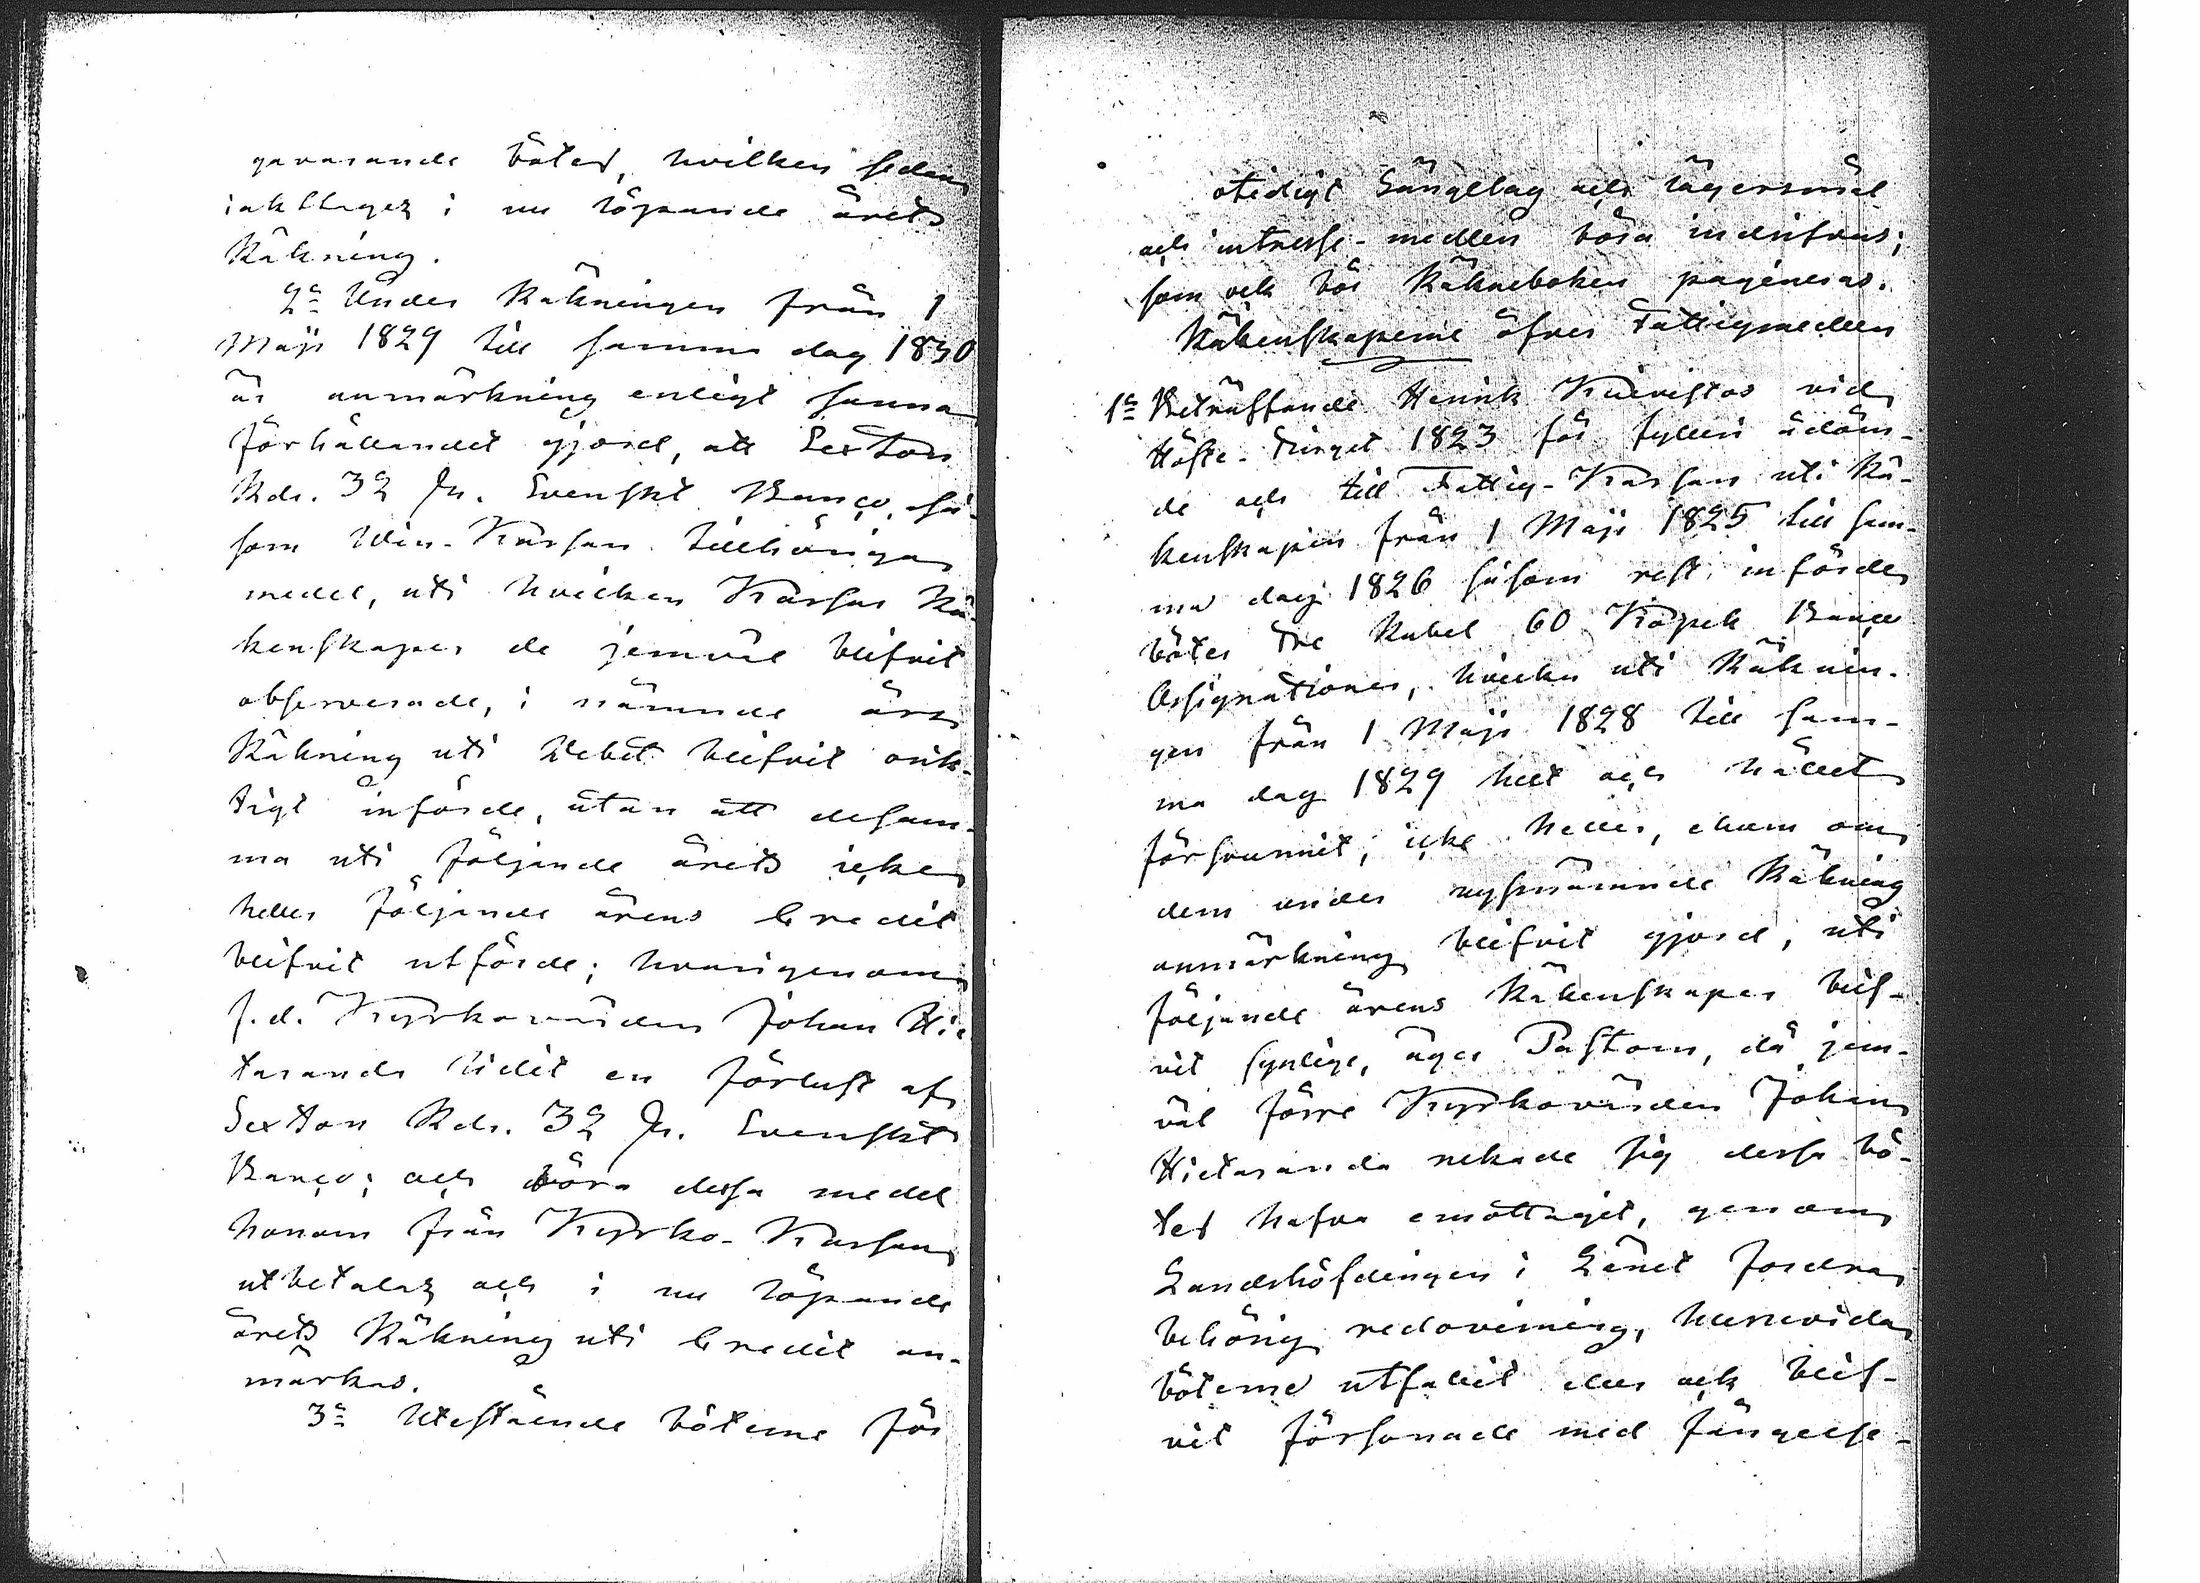 gwarande böter, hvilken sedan
iakttages i nu löpande årets
Räkning.
2:o Under Räkningen från 1
Maji 1829 till samma dag 1830
är anmärkning enligt sanna
förhållandet gjord, att Sexton
Rdr. 32 sk. Svenskt Banco, så-
som Win-Kassan tillhöriga
medel, uti hvilken Kassas Rä-
kenskaper de jemväl blifvit
observerade, i nämnde års
Räkning uti Debet blifvit orik-
tigt införde, utan att desam-
ma uti följande årets icke
heller följande årens Credit
blifvit utförde; hvarigenom
f.d. Kyrkovärden Johan Hie-
taranda lidit en förlust af
Sexton Rdr. 32 sk. Svenskt
Banco; och böra dessa medel
honom från Kyrko-Kassan
utbetalas och i nu löpande
årets Räkning uti Credit an-
märkas.
3:o Utestående böterne för
otidigt Sängelag och lägersmål
och intresse-medlen böra indrifvas;
som ock bör Räkneboken pagineras.
Räkenskaperne öfver Fattigmedlen
1:o Beträffande Henrik Kuivistos vid
Höste-Tinget 1823 för fylleri ådöm-
de och till Fattig-Kassan uti Rä-
kenskapen från 1 Maji 1825 till sam-
ma dag 1826 såsom rest införde
böter Tre Rubel 60 Kopek Banco
Assignationer, hvilka uti Räknin-
gen från 1 Maji 1828 till sam-
ma dag 1829 helt och hållet
försvunnit, icke heller, ehuru om
dem under nyssnämnde Räkning
anmärkning blifvit gjord, uti
följande årens Räkenskaper blif-
vit synlige, äger Pastorn, då jem-
väl förre Kyrkovärden Johan
Hietaranda nekade sig dessa bö-
ter hafva emottagit, genom
Landshöfdingen i Länet fordra
behörig redovisning, huruvida
böterne utfallit eller ock blif-
vit försonade med fängelse-